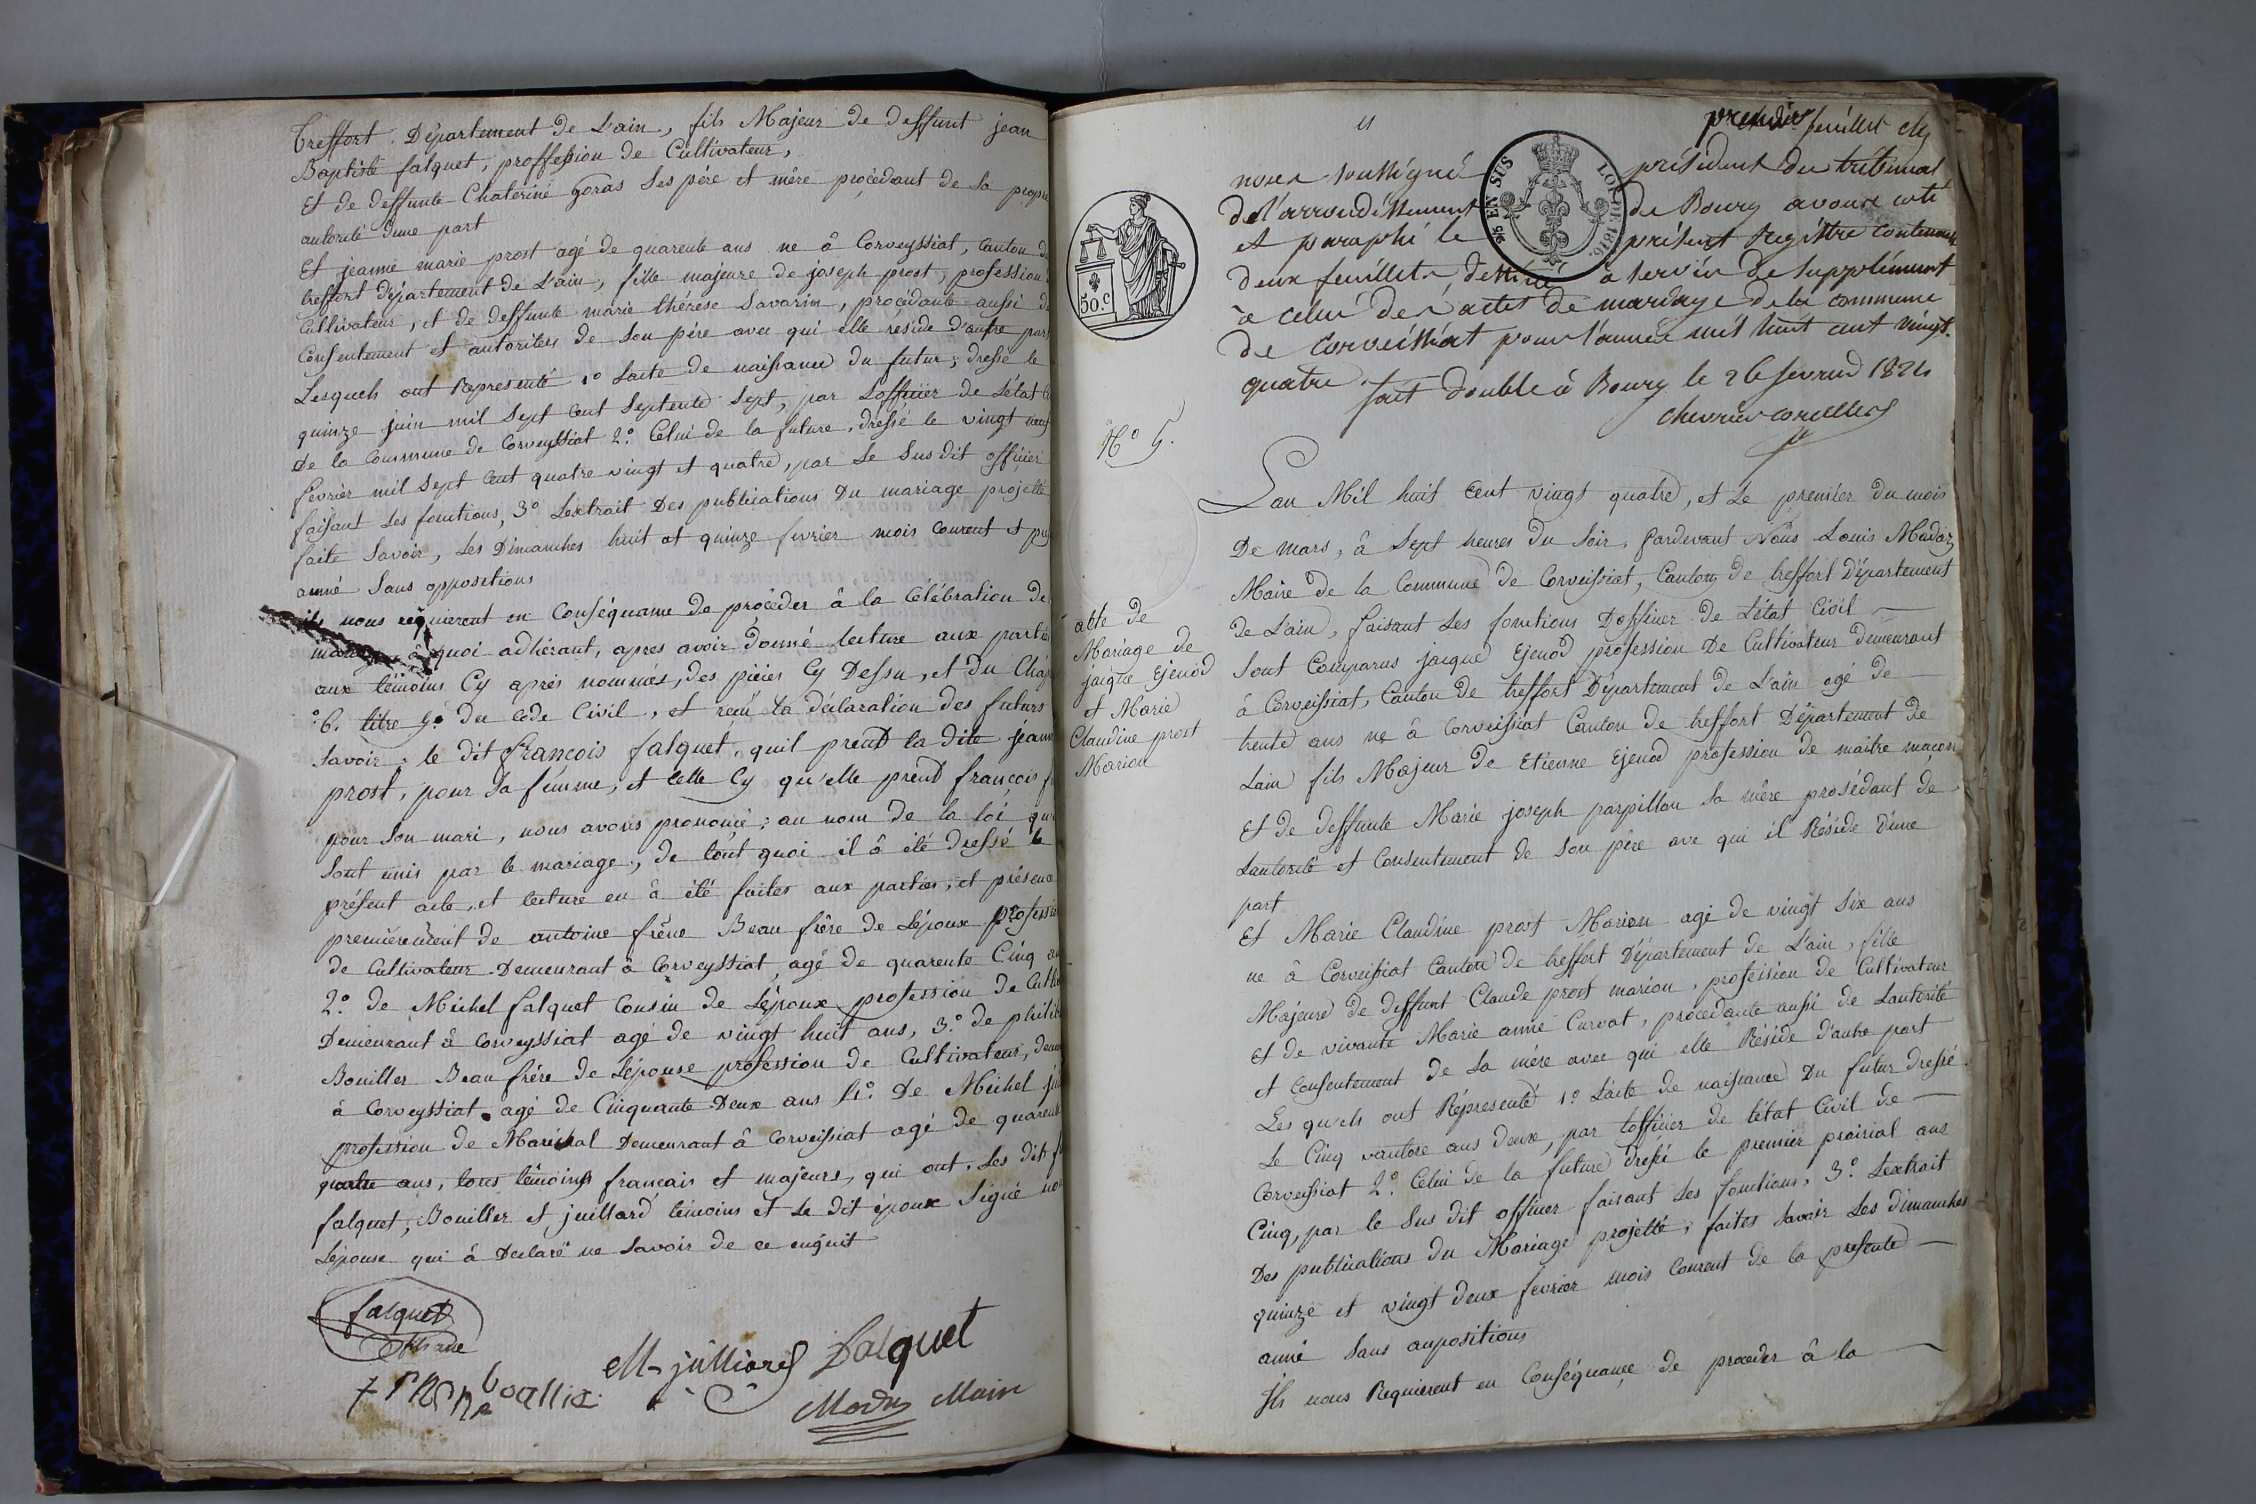 treffort. Département de L'ain, fils Majeur de deffunt jean
Baptiste falquet, proffession de Cultivateur,
Et de deffunte Chaterine goras ses pére et mére procédant de sa propre
autorité d'une part
Et jeanne marie prost agé de quarente ans ne â Corveyssiat, Canton de
treffort département de L'ain, fille majeure de joseph prost, profession
Cultivateur, et de deffunte marie thérese Savarin, procédante aussi du
Consentement et autorites de son pére avec qui elle réside d'autre part
Lesquels ont Représenté 1º Lacte de naissance du futur, dressé le
quinze juin mil sept cent septente sept, par Lofficier de L'état
de la Commune de Corveyssiat 2º. Celui de la future, dressé le vingt neuf
fevrier mil sept cent quatre vingt et quatre, par Le Susdit officier
faisant Les fonctions, 3º Lextrait Des publications Du mariage projetté
faite Savoir, Les Dimanches huit et quinze fevrier mois courent et
anné Sans oppositions
ils nous requierent en Conséquanne de procéder â la Célébration de
mariage, â quoi adhérant, apres avoir donné lecture aux parties
aux témoins Cy aprés nommés, des piéces Cy Dessu, et du Chap
6. titre 5º du Code Civil, et reçu la déclaration des futurs
Savoir, le dit françois falquet, quil prent la dite jeanne
prost, pour Sa femme, et Celle Cy qu'elle prent françois
pour Son mari, nous avons prononcé; au nom de la loi
Sont unis par le mariage, de tout quoi il â été dressé le
présent acte, et lecture en â été faites aux parties, et présence
premierement de antoine fréne Beau frére de Lépoux profession
de Cultivateur Demeurant â Corveyssiat, agé de quarente Cinq
2º. de Michel falquet Cousin de Lépoux profession de
Demeurant â Corveyssiat agé de vingt huit ans, 3º. de
Bouiller Beau frére de Lépouse profession de Cultivateur,
â Corveyssiat agé de Cinquante Deux ans 4º. De Michel
profession de Maréchal Demeurant â Corveissiat agé de quarente
quatre ans, tous témoins francais et majeurs, qui ont, Les dits
falquet, Bouiller et juillard témoins et Le dit époux Signé
Lépouse qui â Déclaré ne Savoir de ce enquit
falquet
M juilliard
falquet
Maire
50.c
premier feuillet
nous soussigné
président du tribunal
de l'arrondissement
de Bourg avons coté
et paraphé le
présent Registre contenant
deux feuillets, destiné
â servir de Supplément
EN SUS
LOI DE 1816
â celui des actes de mariage de la commune
de Corveissiat pour l'année mil huit cent vingt
quatre. fait double â Bourg le 26 fevrier 1824
chevrier corcelles
Nº 5.
acte de
Mariage de
jacque Ejenod
et Marie
Claudine prost
Marion
Lan Mil huit Cent vingt quatre, et Le premier du mois
De mars, â Sept heures Du Soir, Pardevant Nous Louis
Maire de la Commune de Corveissiat, Canton de treffort Département
de L'ain, faisant Les fonctions D'officier de L'état Civil
Sont Comparus jacque Ejenod profession De Cultivateur demeurant
â Corveissiat, Canton de treffort Département de L'ain agé de
trente ans ne â Corveissiat Canton de treffort Département de
Lain fils Majeur de Etienne Ejenod profession de maitre maçon
Et de deffunte Marie joseph parpillon Sa mére prosédant de
Lautorité et Consentement de Son pére ave qui il Réside d'une
part
Et Marie Claudine prost Marion agé de vingt six ans
ne â Corveissiat Canton de treffort Département de L'ain, fille
Majeure de deffunt Claude prost marion, profession de Cultivateur
Et de vivante Marie anne Curvat, procédante aussi de Lautorité
et Consentement de Sa mére avec qui elle Réside d'autre part
Les quels ont Représenté 1º Lacte de naissance Du futur dressé
Le Cinq vantose ans deux, par lofficier de létat Civil de
Corveissiat 2º. Celui de la future dressé le premier prairial ans
Cinq, par le Sus dit officier faisant Les fonctions, 3º. Lextrait
Des publications du Mariage projetté, faites Savoir Les dimanches
quinze et vingt deux fevrier mois Courent de la présente
anné Sans oupositions
Ils nous Requierent en Conséquance de proceder â la